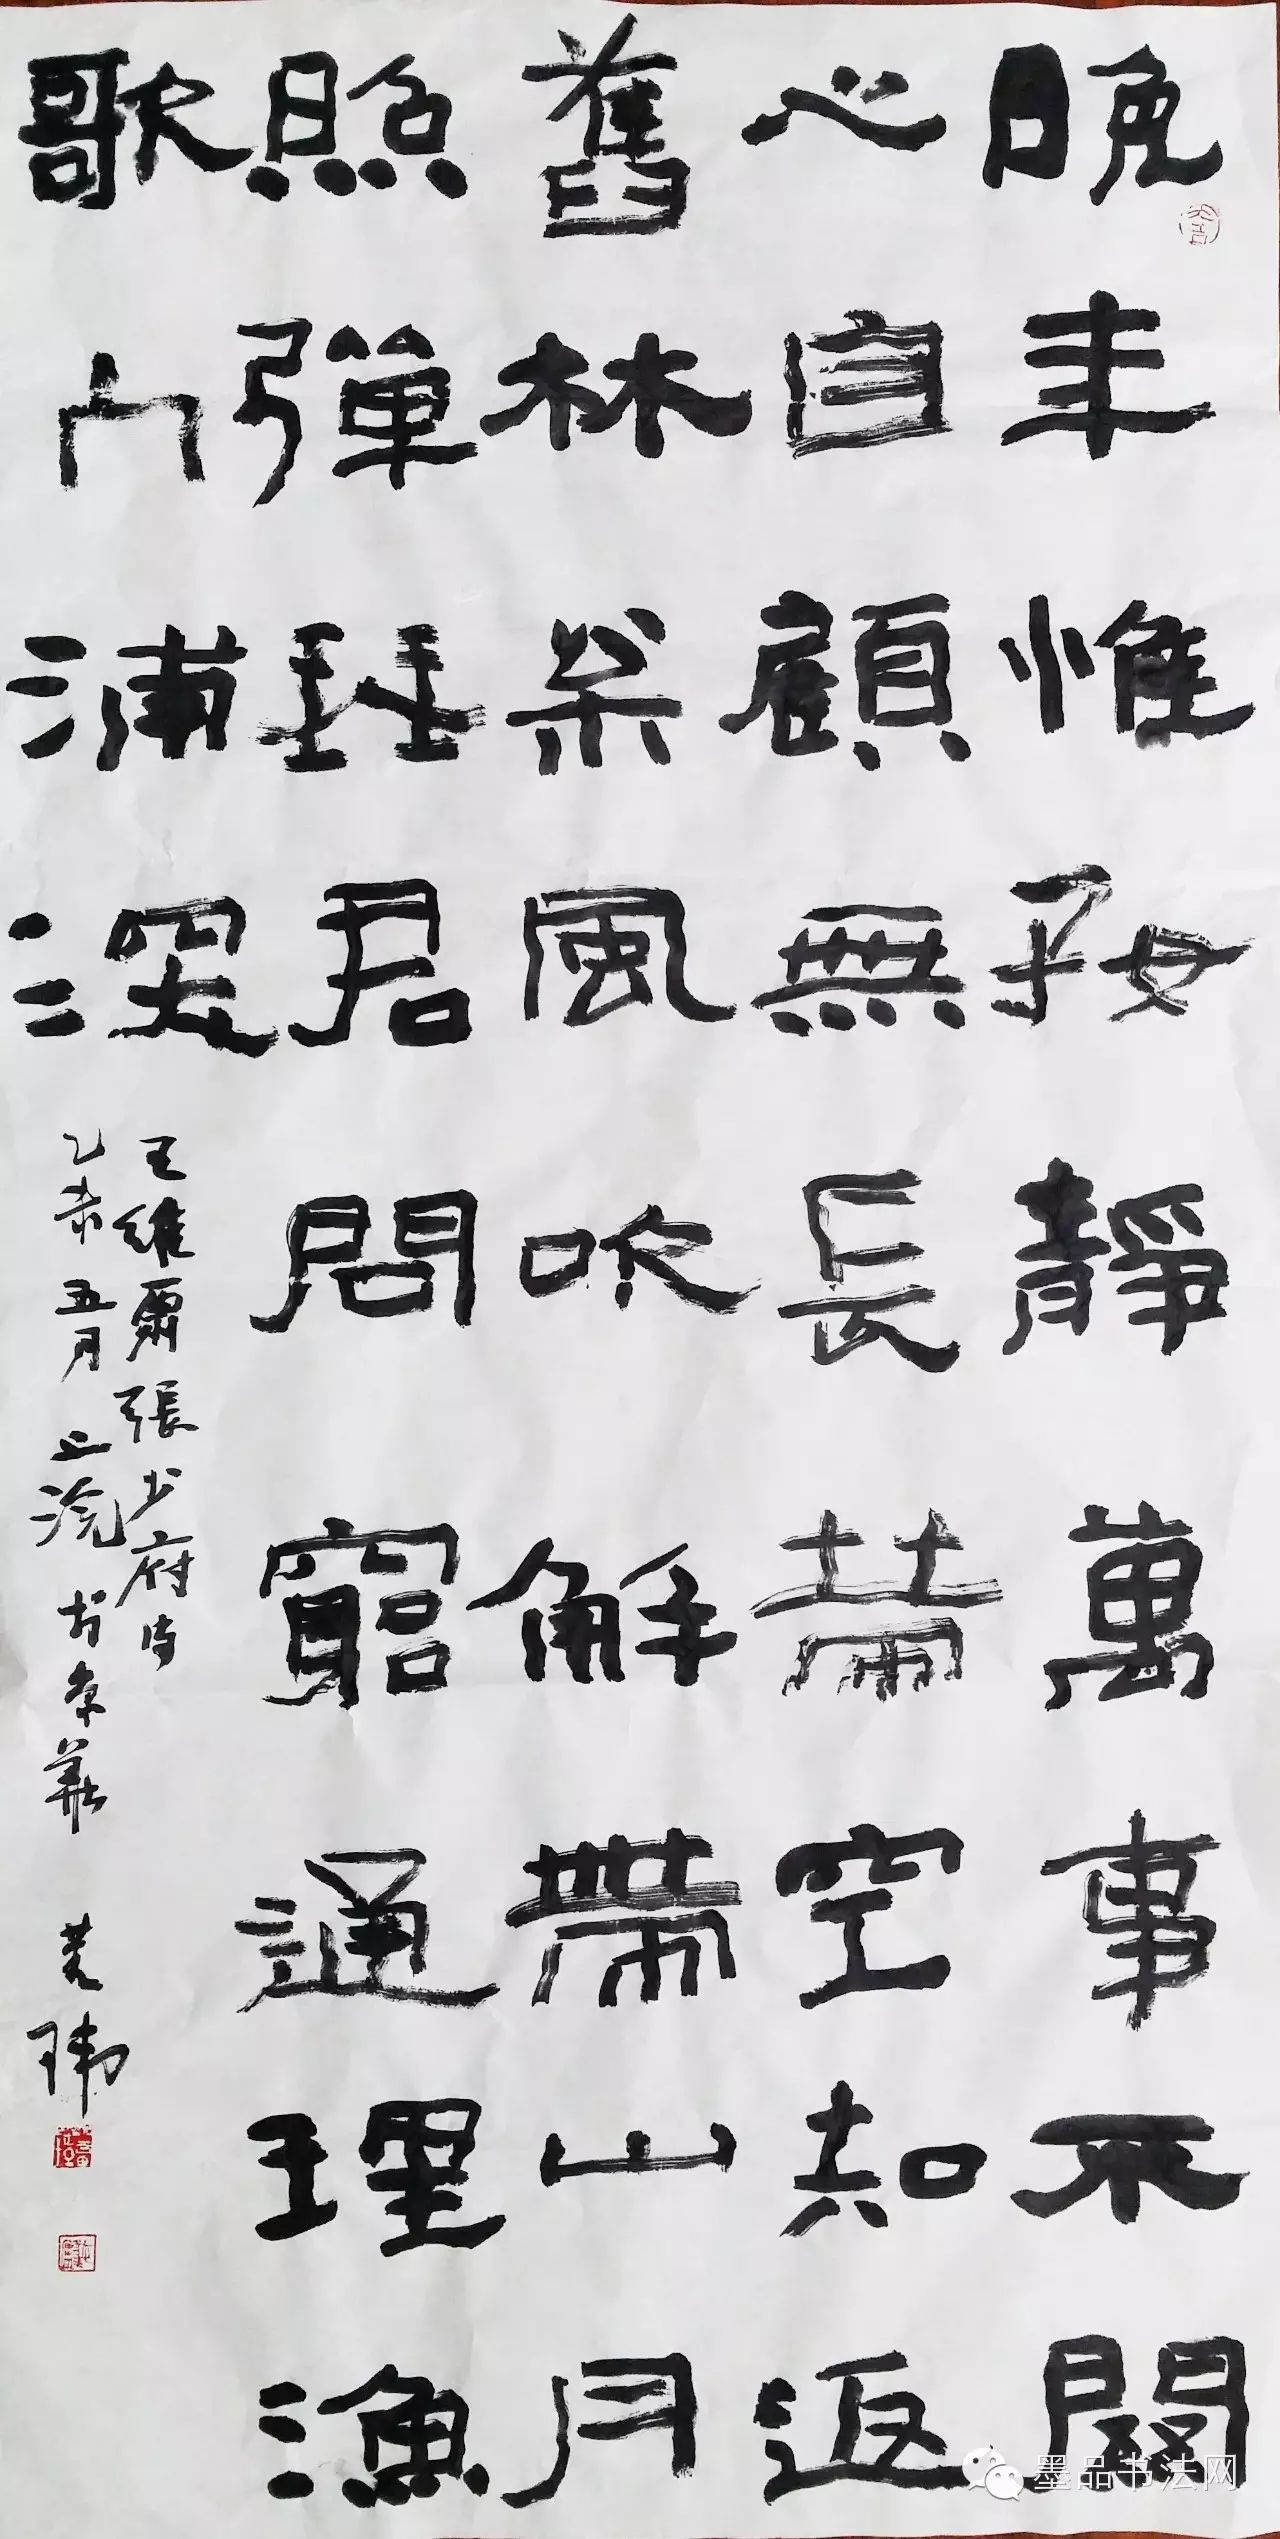 晚年惟好靜萬事不關
心自顧無長策空知返
舊林松風吹解帶山月
照彈琴君問窮通理漁
歌入浦深
王維爾張少府诗
乙未五月上浣京華 瑋
墨品书法网